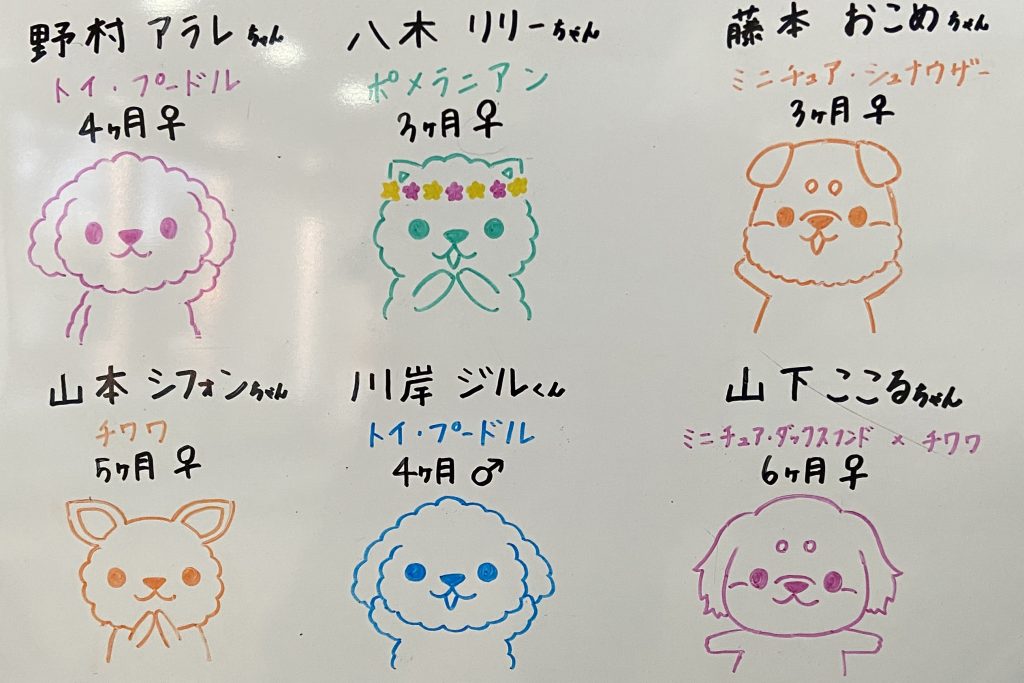 野村 アラレちゃん
トイ・プードル
4ヶ月 ♀
八木 リリーちゃん
ポメラニアン
3ヶ月 ♀
藤本 おこめちゃん
ミニチュア・シュナウザー
3ヶ月 ♀
山本 シフォンちゃん
チワワ
5ヶ月 ♀
川岸 ジルくん
トイ・プードル
4ヶ月 ♂
山下 こころちゃん
ミニチュア・ダックスフンド × チワワ
6ヶ月 ♀